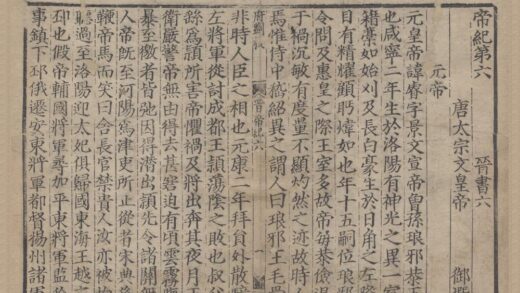 帝紀第六 晉書六
唐太宗文皇帝 御撰
元帝
元皇帝諱睿字景文宣帝曾孫琅邪恭王
也咸寧二年生於洛陽有神光之異一室
籍藁如始刈及長白豪生於日角之左隆
目有精耀顧眄煒如也年十五嗣位琅邪
令問及惠皇之際王室多故帝每恭儉退
于禍沉敏有度量不顯灼然之迹故時人
焉惟侍中嵇紹異之謂人曰琅邪王毛骨
非時人臣之相也元康二年拜員外散騎
晉帝紀六 一
左將軍從討成都王穎蕩陰之敗也叔父
繇為穎所害帝懼禍及將出奔其夜月正
衛嚴警帝無由得去甚窘迫有頃雲霧
暴至徼者皆弛因得潛出穎先令諸關無
人帝旣至河陽為津吏所止從者宋典後
鞭帝馬而笑曰舍長官禁貴人汝亦被拘
聽過至洛陽迎太妃俱歸國東海王越之
邳也假帝輔國將軍尋加平東將軍監徐
事鎮下邳俄遷安東將軍都督揚州諸軍